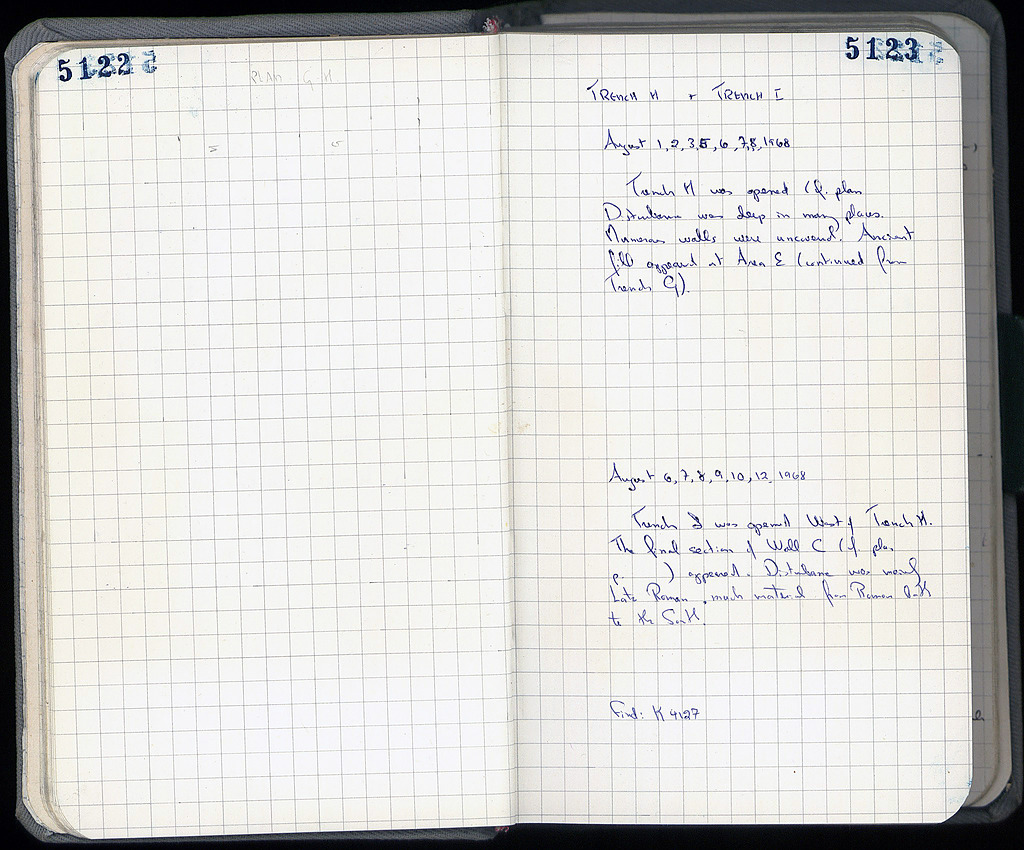 5122
PLAN G H
5123
TRENCH H + TRENCH I
August 1, 2, 3, 5, 6, 7, 8, 1968
Trench H was opened (cf. plan
Disturbance was deep in many places.
Numerous walls were uncovered. Ancient
fill appeared at Area E (continued from
Trench G).
August 6, 7, 8, 9, 10, 12, 1968
Trench I was opened West of Trench H.
The final section of Wall C (cf. plan
p. ) appeared. Disturbance was mainly
Late Roman, much material from Roman
to the South.
Find: K 4127